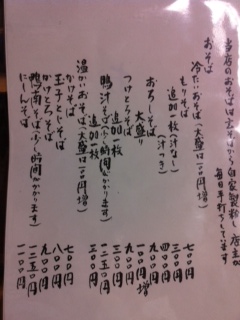 当店のおそばは玄そばから自家製粉し店主が
毎日手打ちしています
おそば
冷たいおそば(大盛は二〇〇円増)
もりそば 七〇〇円
追加一枚(汁なし) 三〇〇円
追加一枚(汁つき) 四〇〇円
おろしそば 九〇〇円
大盛り 二〇〇円増
つけとろそば 九〇〇円
追加一枚 三〇〇円
鴨汁そば(少し時間かかります) 一二五〇円
追加一枚 三〇〇円
温かいおそば(大盛は二〇〇円増)
かけそば 七〇〇円
玉子とじそば 八〇〇円
かけとろそば 九〇〇円
鴨南そば(少し時間かかります) 一二五〇円
にしんそば 一一〇〇円